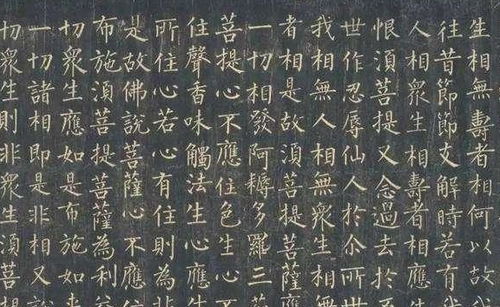 生相無壽者相何以故
往昔節節支解時若有我
人相衆生相壽者相應生
恨須菩提又念過去於五
世作忍辱仙人於尒所世
我相無人相無衆生相無
者相是故須菩提菩薩應
一切相發阿耨多羅三
菩提心不應住色生心不
住聲香味觸法生心應生
所住心若心有住則為非
是故佛說菩薩心不應住
布施須菩提菩薩為利
切衆生應如是布施如來
一切諸相即是非相又說
切衆生則非衆生須菩提